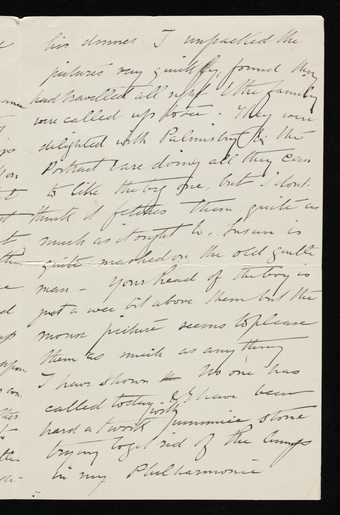 his dinner I unpacked the
pictures very quickly, found they
had travelled all right & the family
were called up to see. They were
delighted with Palmistry & the
Portrait & are doing all they can
to like the big one, but I dont
think it fetches them quite as
much as it ought to. Susan is
quite mashed on the old gentle
man - Your head of the boy is
just a wee bit above them but the
mouse picture seems to please
them as much as anything
I have shown No one has
called today & I have been
hard at work with pummice stone
trying to get rid of the lumps
in my Philharmonic